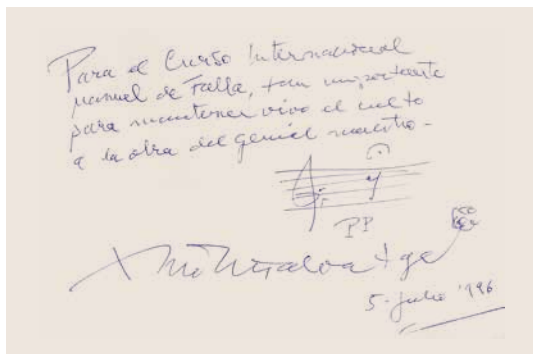 Para el Curso Internacional
Manuel de Falla, tan importante
para mantener vivo el culto
a la obra del genial maestro-
PP
X Montsalvatge
5-julio '96